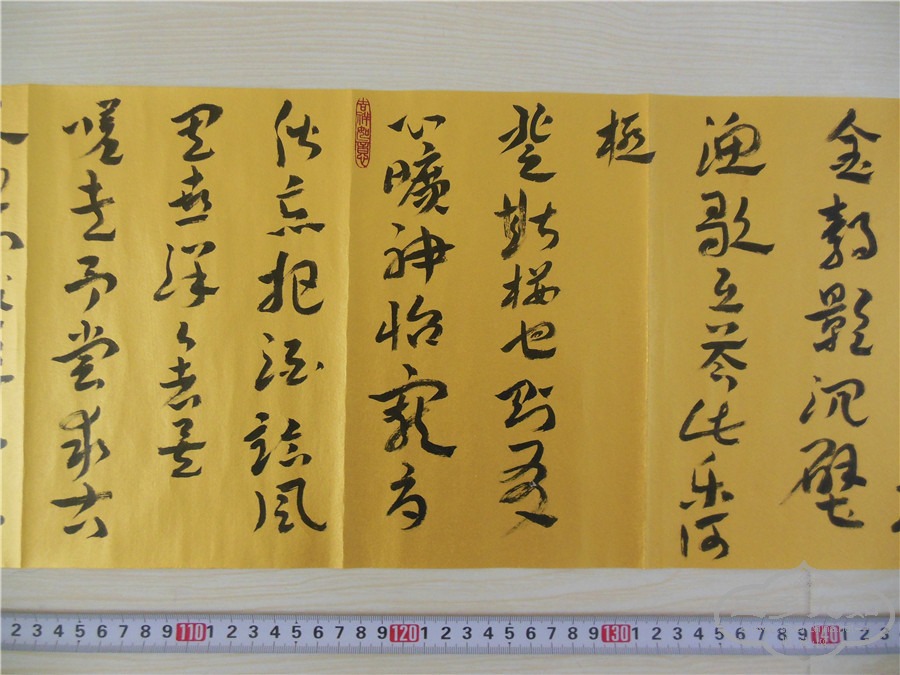 金静影沉璧
渔歌互答此乐何
極
登斯楼也则有
心曠神怡寵辱
偕忘把酒临風
其喜洋洋者矣
嗟夫予嘗求古
吉祥如意
2 3 4 5 6 7 8 9 110 1 2 3 4 5 6 7 8 9 120 1 2 3 4 5 6 7 8 9 130 1 2 3 4 5 6 7 8 9 140 1 2 3